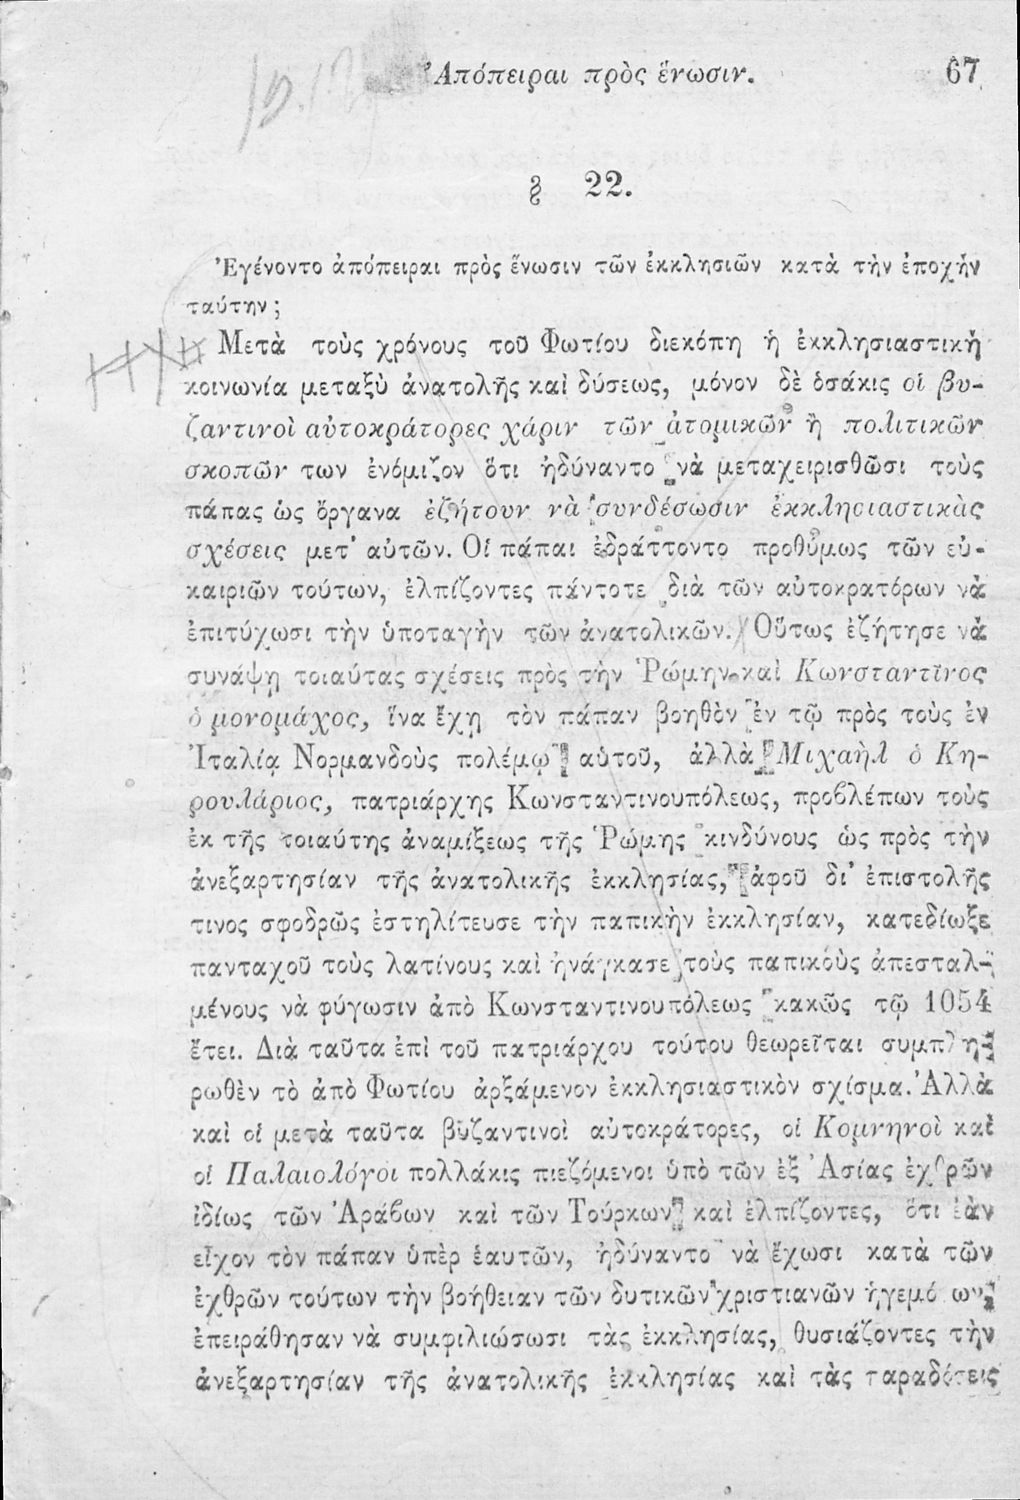 Ἀπόπειραι πρὸς ἕνωσιν. 67
§ 22.
Ἐγένοντο ἀπόπειραι πρὸς ἕνωσιν τῶν ἐκκλησιῶν κατὰ τὴν ἐποχὴν
ταύτην ;
Μετὰ τοὺς χρόνους τοῦ Φωτίου διεκόπη ἡ ἐκκλησιαστικὴ
κοινωνία μεταξὺ ἀνατολῆς καὶ δύσεως, μόνον δὲ ὁσάκις οἱ βυ-
ζαντινοὶ αὐτοκράτορες χάριν τῶν ἀτομικῶν ἢ πολιτικῶν
σκοπῶν των ἐνόμιζον ὅτι ἠδύναντο νὰ μεταχειρισθῶσι τοὺς
πάπας ὡς ὄργανα ἐζήτουν νὰ συνδέσωσιν ἐκκλησιαστικὰς
σχέσεις μετ' αὐτῶν. Οἱ πάπαι ἐδράττοντο προθύμως τῶν εὐ-
καιριῶν τούτων, ἐλπίζοντες πάντοτε διὰ τῶν αὐτοκρατόρων νὰ
ἐπιτύχωσι τὴν ὑποταγὴν τῶν ἀνατολικῶν. Οὕτως ἐζήτησε νὰ
συνάψῃ τοιαύτας σχέσεις πρὸς τὴν Ῥώμην καὶ Κωνσταντῖνος
ὁ μονομάχος, ἵνα ἔχῃ τὸν πάπαν βοηθὸν ἐν τῷ πρὸς τοὺς ἐν
Ἰταλίᾳ Νορμανδοὺς πολέμῳ αὑτοῦ, ἀλλὰ Μιχαὴλ ὁ Κη-
ρουλάριος, πατριάρχης Κωνσταντινουπόλεως, προβλέπων τοὺς
ἐκ τῆς τοιαύτης ἀναμίξεως τῆς Ῥώμης κινδύνους ὡς πρὸς τὴν
ἀνεξαρτησίαν τῆς ἀνατολικῆς ἐκκλησίας, ἀφοῦ δι' ἐπιστολῆς
τινος σφοδρῶς ἐστηλίτευσε τὴν παπικὴν ἐκκλησίαν, κατεδίωξε
πανταχοῦ τοὺς λατίνους καὶ ἠνάγκασε τοὺς παπικοὺς ἀπεσταλ-
μένους νὰ φύγωσιν ἀπὸ Κωνσταντινουπόλεως κακῶς τῷ 1054
ἔτει. Διὰ ταῦτα ἐπὶ τοῦ πατριάρχου τούτου θεωρεῖται συμπλη-
ρωθὲν τὸ ἀπὸ Φωτίου ἀρξάμενον ἐκκλησιαστικὸν σχίσμα. Ἀλλὰ
καὶ οἱ μετὰ ταῦτα βυζαντινοὶ αὐτοκράτορες, οἱ Κομνηνοὶ καὶ
οἱ Παλαιολόγοι πολλάκις πιεζόμενοι ὑπὸ τῶν ἐξ Ἀσίας ἐχθρῶν
ἰδίως τῶν Ἀράβων καὶ τῶν Τούρκων καὶ ἐλπίζοντες, ὅτι ἐὰν
εἶχον τὸν πάπαν ὑπὲρ ἑαυτῶν, ἠδύναντο νὰ ἔχωσι κατὰ τῶν
ἐχθρῶν τούτων τὴν βοήθειαν τῶν δυτικῶν χριστιανῶν ἡγεμόνων,
ἐπειράθησαν νὰ συμφιλιώσωσι τὰς ἐκκλησίας, θυσιάζοντες τὴν
ἀνεξαρτησίαν τῆς ἀνατολικῆς ἐκκλησίας καὶ τὰς παραδόσεις